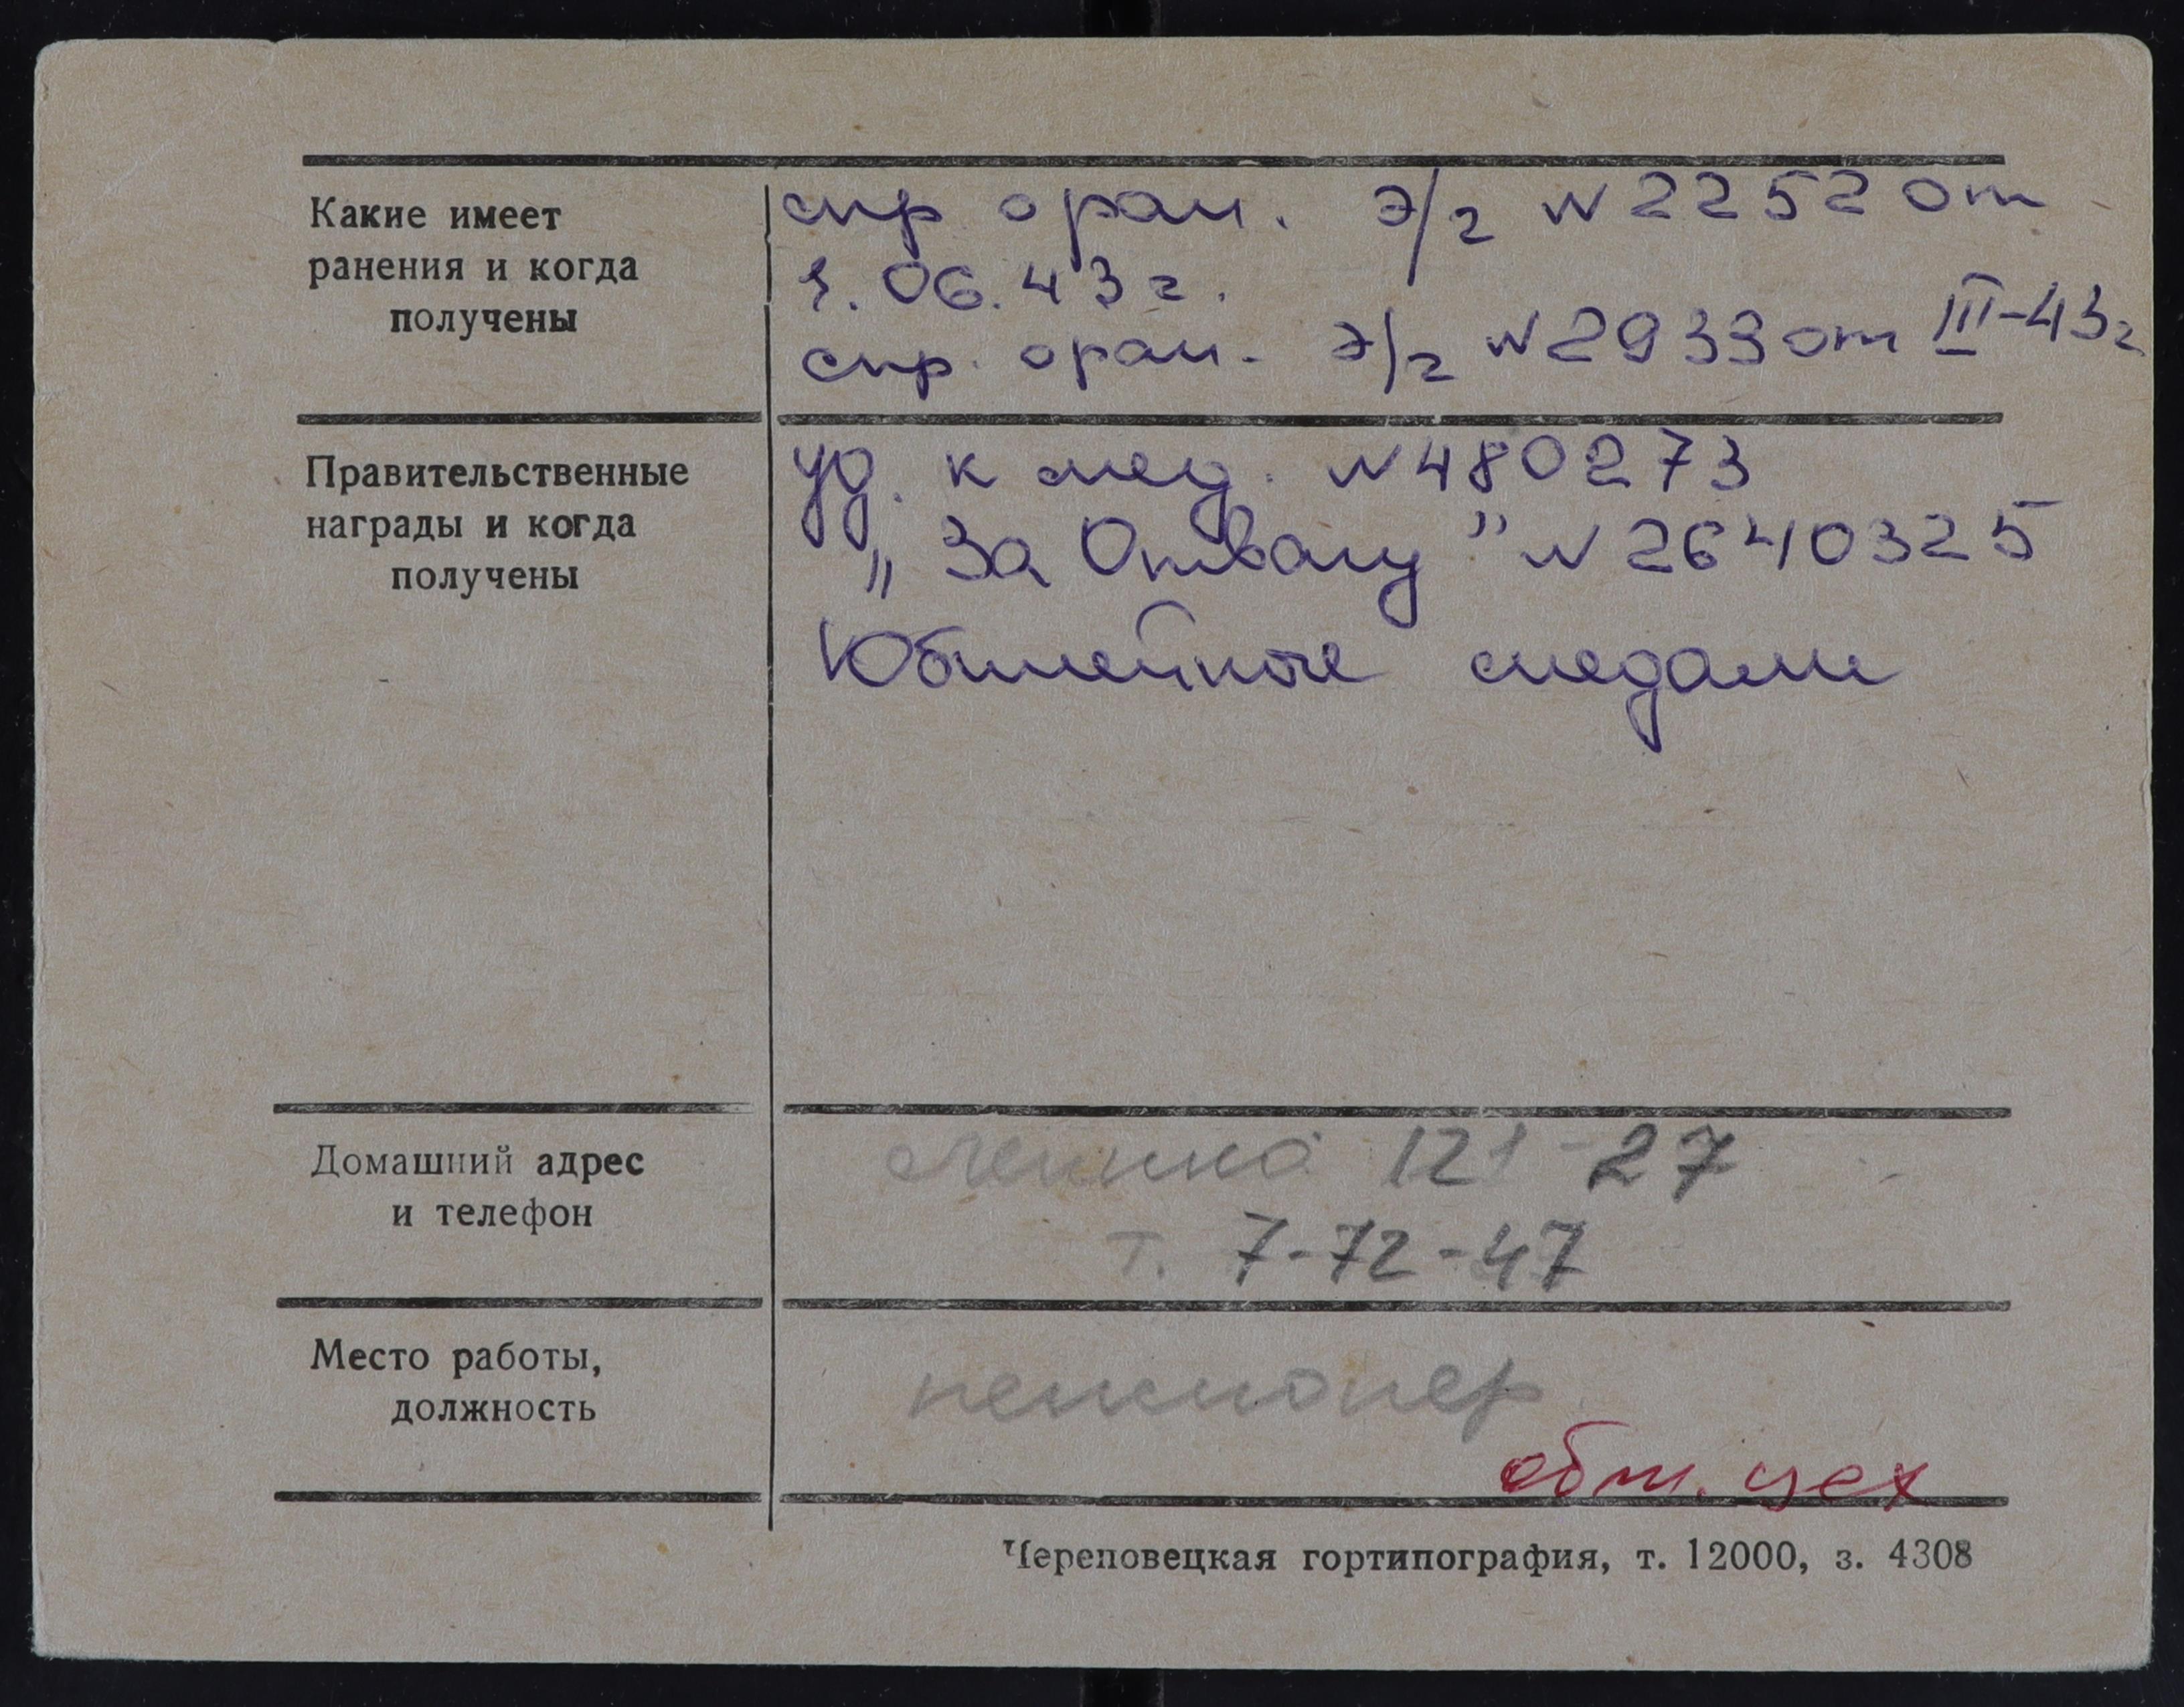 Какие имеет
ранения и когда
получены
спр о ран. э/г N 2252 от
1.06.43 г.
спр. о ран. э/г N 2933 от III-43 г
Правительственные
награды и когда
получены
уд. к мед. N 480273
„За Отвагу" N 2640325
Юбилейные медали
Домашний адрес
и телефон
Ленина 121-27
т. 7-72-47
Место работы,
должность
пенсионер
обж. цех
Череповецкая гортипография, т. 12000, з. 4308